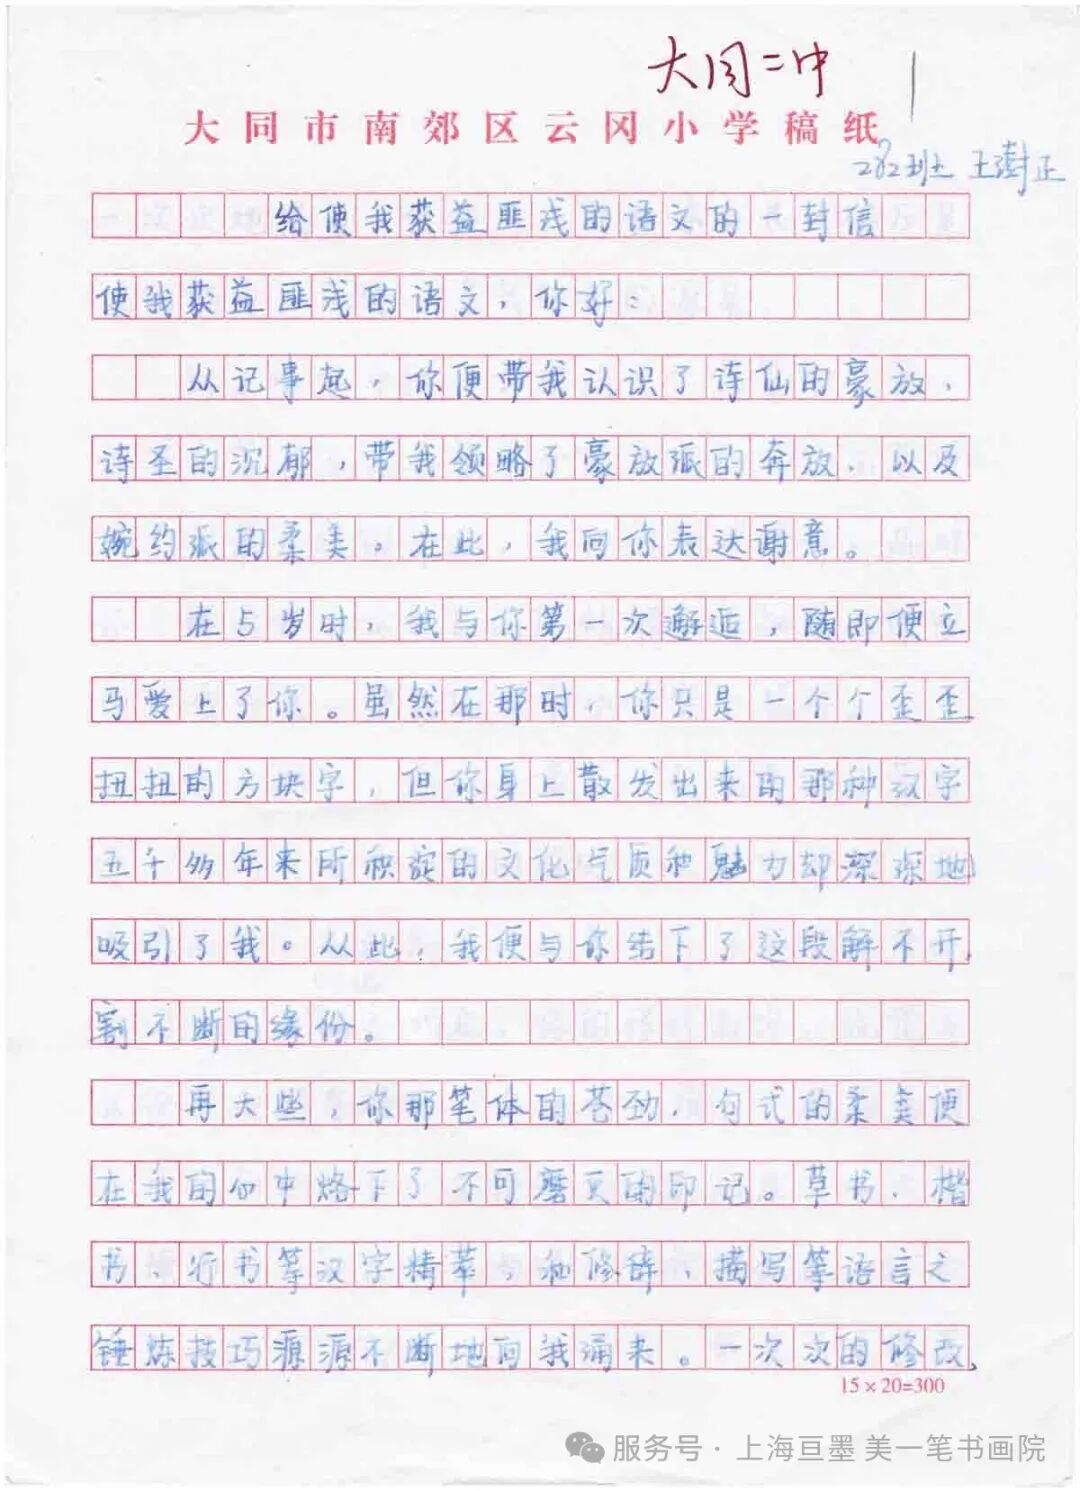 大同二中
大同市南郊区云冈小学稿纸
282班 王澍正
给使我获益匪浅的语文的一封信
使我获益匪浅的语文，你好：
从记事起，你便带我认识了诗仙的豪放、
诗圣的沉郁，带我领略了豪放派的奔放、以及
婉约派的柔美。在此，我向你表达谢意。
在5岁时，我与你第一次邂逅，随即便立
马爱上了你。虽然在那时，你只是一个个歪歪
扭扭的方块字，但你身上散发出来的那种汉字
五千多年来所积淀的文化气质和魅力却深深地
吸引了我。从此，我便与你结下了这段解不开、
割不断的缘份。
再大些，你那笔体的苍劲，句式的柔美便
在我的心中烙下了不可磨灭的印记。草书、楷
书、行书等汉字精萃，和修辞、描写等语言之
锤炼技巧源源不断地向我涌来。一次次的修改、
15×20=300
服务号·上海亘墨 美一笔书画院